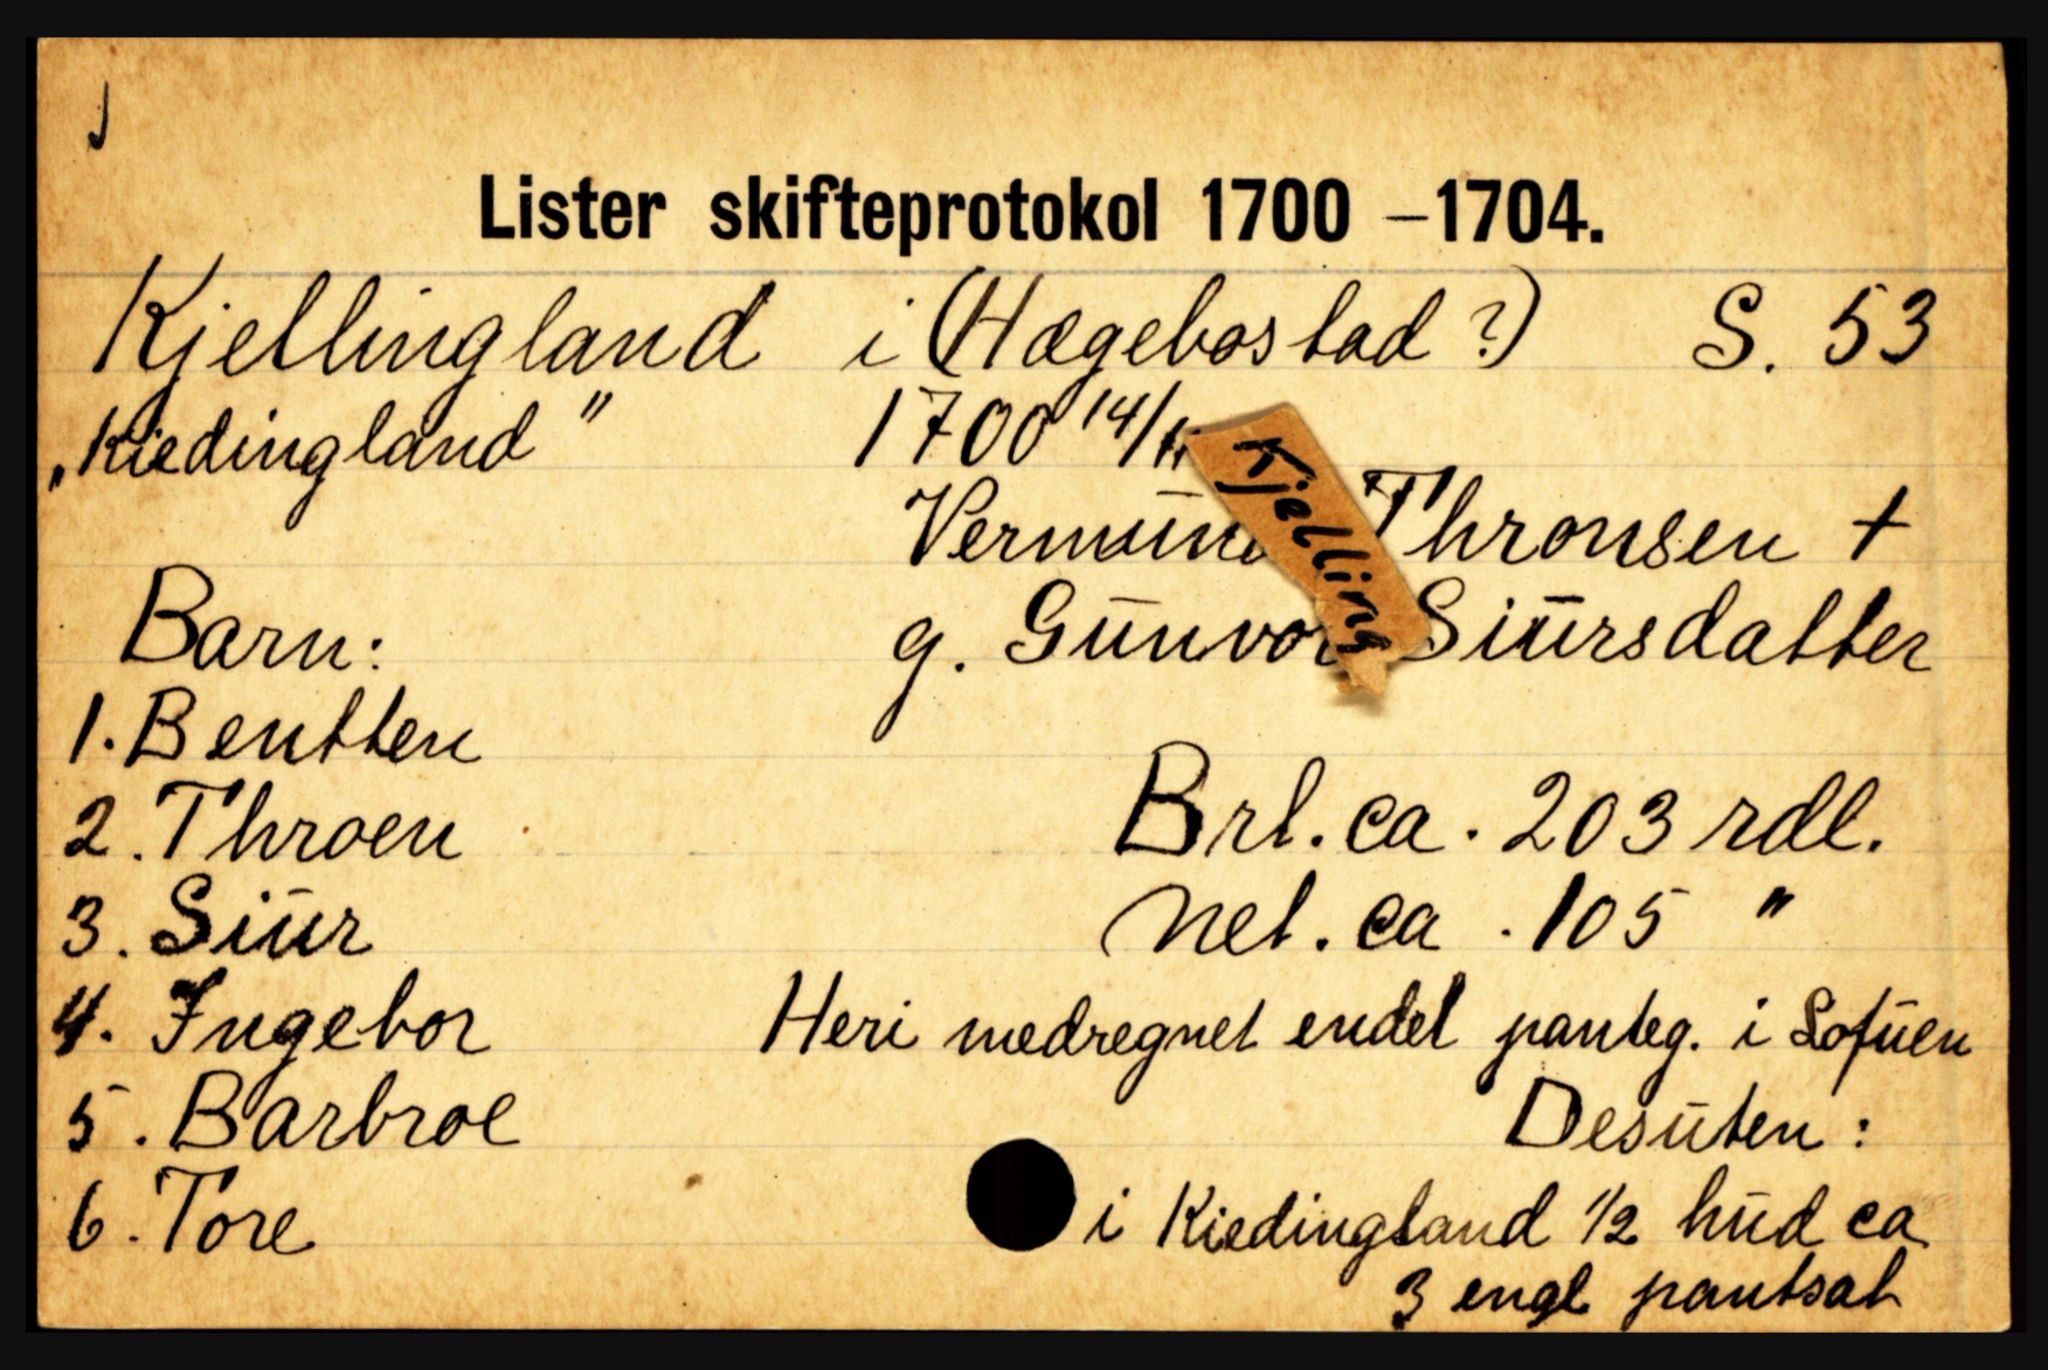 Lister skifteprotokol 1700 – 1704.
Kjellingland i (Hægebostad ?) S. 53
„Kiedingland” 1700 14/11
Kjelling
Vermund Thronsen +
g. Gunvor Siursdatter
Barn:
1. Bentten
2. Throen
3. Siur
4. Ingebor
5. Barbroe
6. Tore
Brl. ca. 203 rdl.
Net. ca. 105 "
Heri medregnet endel panteg. i Lofuen
Desuten :
i Kiedingland 1/2 hud ca
3 engl pantsat